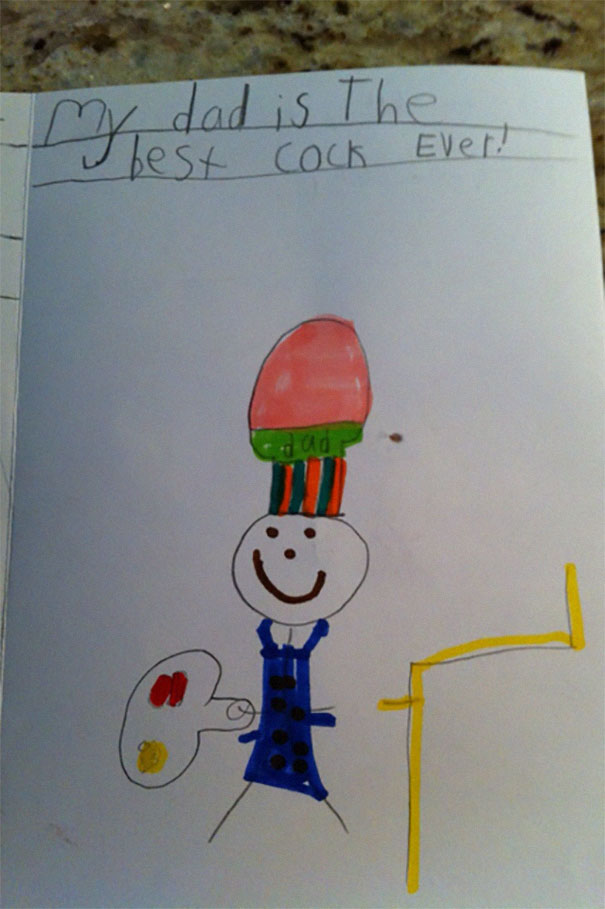 My dad is The
best cock Ever!
dad